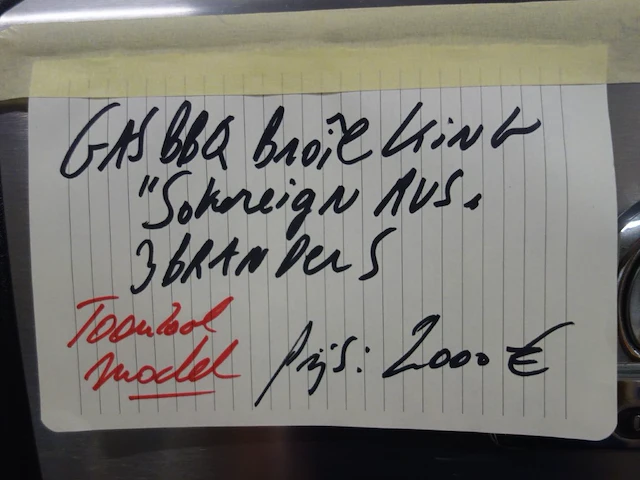 GAS BBQ Broil King
"Sovereign AUS.
3 BRANDERS
Toonzaal
model
prijs: 2000 €